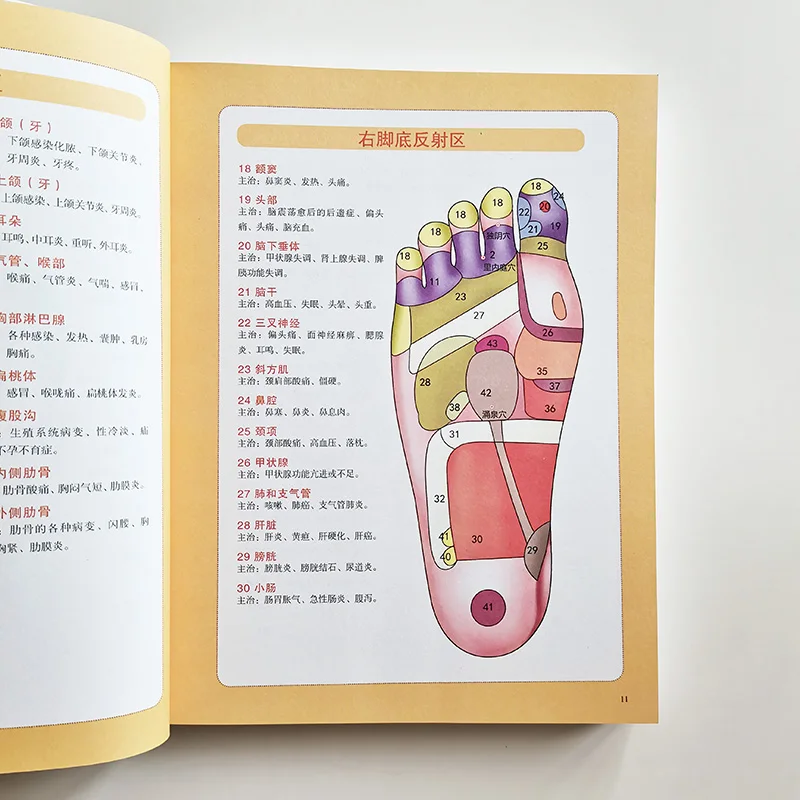 颌（牙）
下颌感染化脓、下颌关节炎、
牙周炎、牙疼。
上颌（牙）
上颌感染、上颌关节炎、牙周炎。
耳朵
耳鸣、中耳炎、重听、外耳炎。
气管、喉部
喉痛、气管炎、气喘、感冒、
胸部淋巴腺
各种感染、发热、囊肿、乳房
胸痛。
扁桃体
感冒、喉咙痛、扁桃体发炎。
腹股沟
生殖系统病变、性冷淡、痛
不孕不育症。
内侧肋骨
肋骨酸痛、胸闷气短、肋膜炎。
外侧肋骨
肋骨的各种病变、闪腰、胸
胸紧、肋膜炎。
右脚底反射区
18 额窦
主治：鼻窦炎、发热、头痛。
19 头部
主治：脑震荡愈后的后遗症、偏头
痛、头痛、脑充血。
20 脑下垂体
主治：甲状腺失调、肾上腺失调、脾
胰功能失调。
21 脑干
主治：高血压、失眠、头晕、头重。
22 三叉神经
主治：偏头痛、面神经麻痹、腮腺
炎、耳鸣、失眠。
23 斜方肌
主治：颈肩部酸痛、僵硬。
24 鼻腔
主治：鼻塞、鼻炎、鼻息肉。
25 颈项
主治：颈部酸痛、高血压、落枕。
26 甲状腺
主治：甲状腺功能亢进或不足。
27 肺和支气管
主治：咳嗽、肺癌、支气管肺炎。
28 肝脏
主治：肝炎、黄疸、肝硬化、肝癌。
29 膀胱
主治：膀胱炎、膀胱结石、尿道炎。
30 小肠
主治：肠胃胀气、急性肠炎、腹泻。
18
18
18
18
18
24
20
22
19
21
独阴穴
2
里内庭穴
25
11
23
27
26
43
35
28
42
37
38
36
涌泉穴
31
32
41
30
40
29
41
11